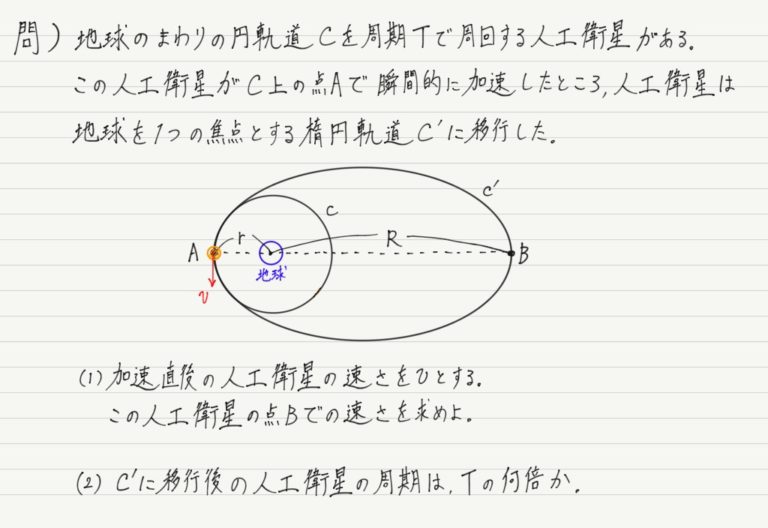 問) 地球のまわりの円軌道Cを周期Tで周回する人工衛星がある.
この人工衛星がC上の点Aで瞬間的に加速したところ,人工衛星は
地球を1つの焦点とする楕円軌道C'に移行した.
C'
C
A r R B
地球
v
(1) 加速直後の人工衛星の速さをvとする.
この人工衛星の点Bでの速さを求めよ.
(2) C'に移行後の人工衛星の周期は,Tの何倍か.